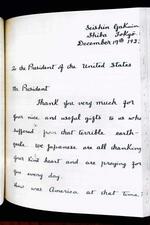 Seishin Gakuin
Shiba Tokyo
December 19th 192
To the President of the United States
Mr. President
Thank you very much for
your nice and useful gifts to us who
suffered from that terrible earth-
quake. We Japanese are all thanking
your kind heart and are praying for
you every day.
How was America at that time?